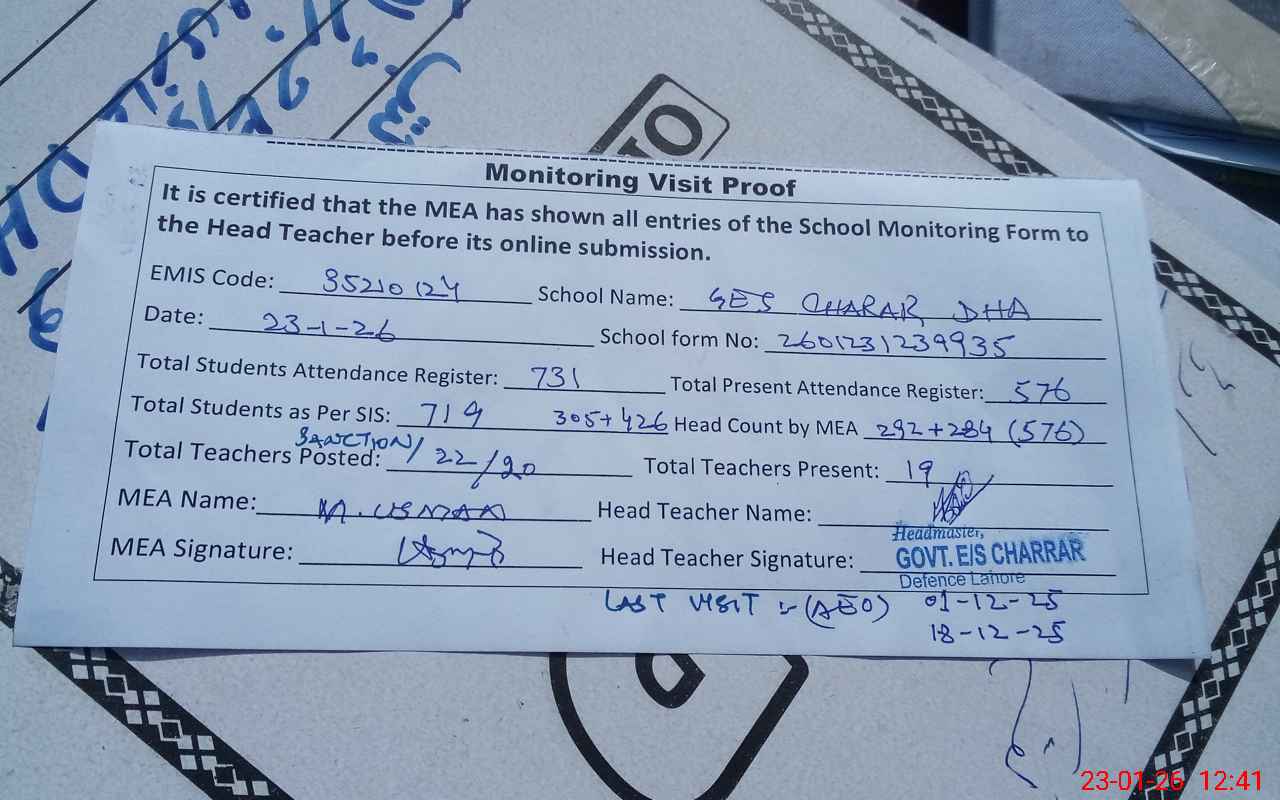 Monitoring Visit Proof
It is certified that the MEA has shown all entries of the School Monitoring Form to
the Head Teacher before its online submission.
EMIS Code: 35210124 School Name: GES CHARAR DHA
Date: 23-1-26 School form No: 2601231239935
Total Students Attendance Register: 731 Total Present Attendance Register: 576
Total Students as Per SIS: 719 305+426 Head Count by MEA 292+284 (576)
SANCTION/
Total Teachers Posted: 22/20 Total Teachers Present: 19
MEA Name: M. USMAN Head Teacher Name:
MEA Signature: Head Teacher Signature:
Headmaster,
GOVT. E/S CHARRAR
Defence Lahore
LAST VISIT :- (AEO) 01-12-25
18-12-25
23-01-26 12:41